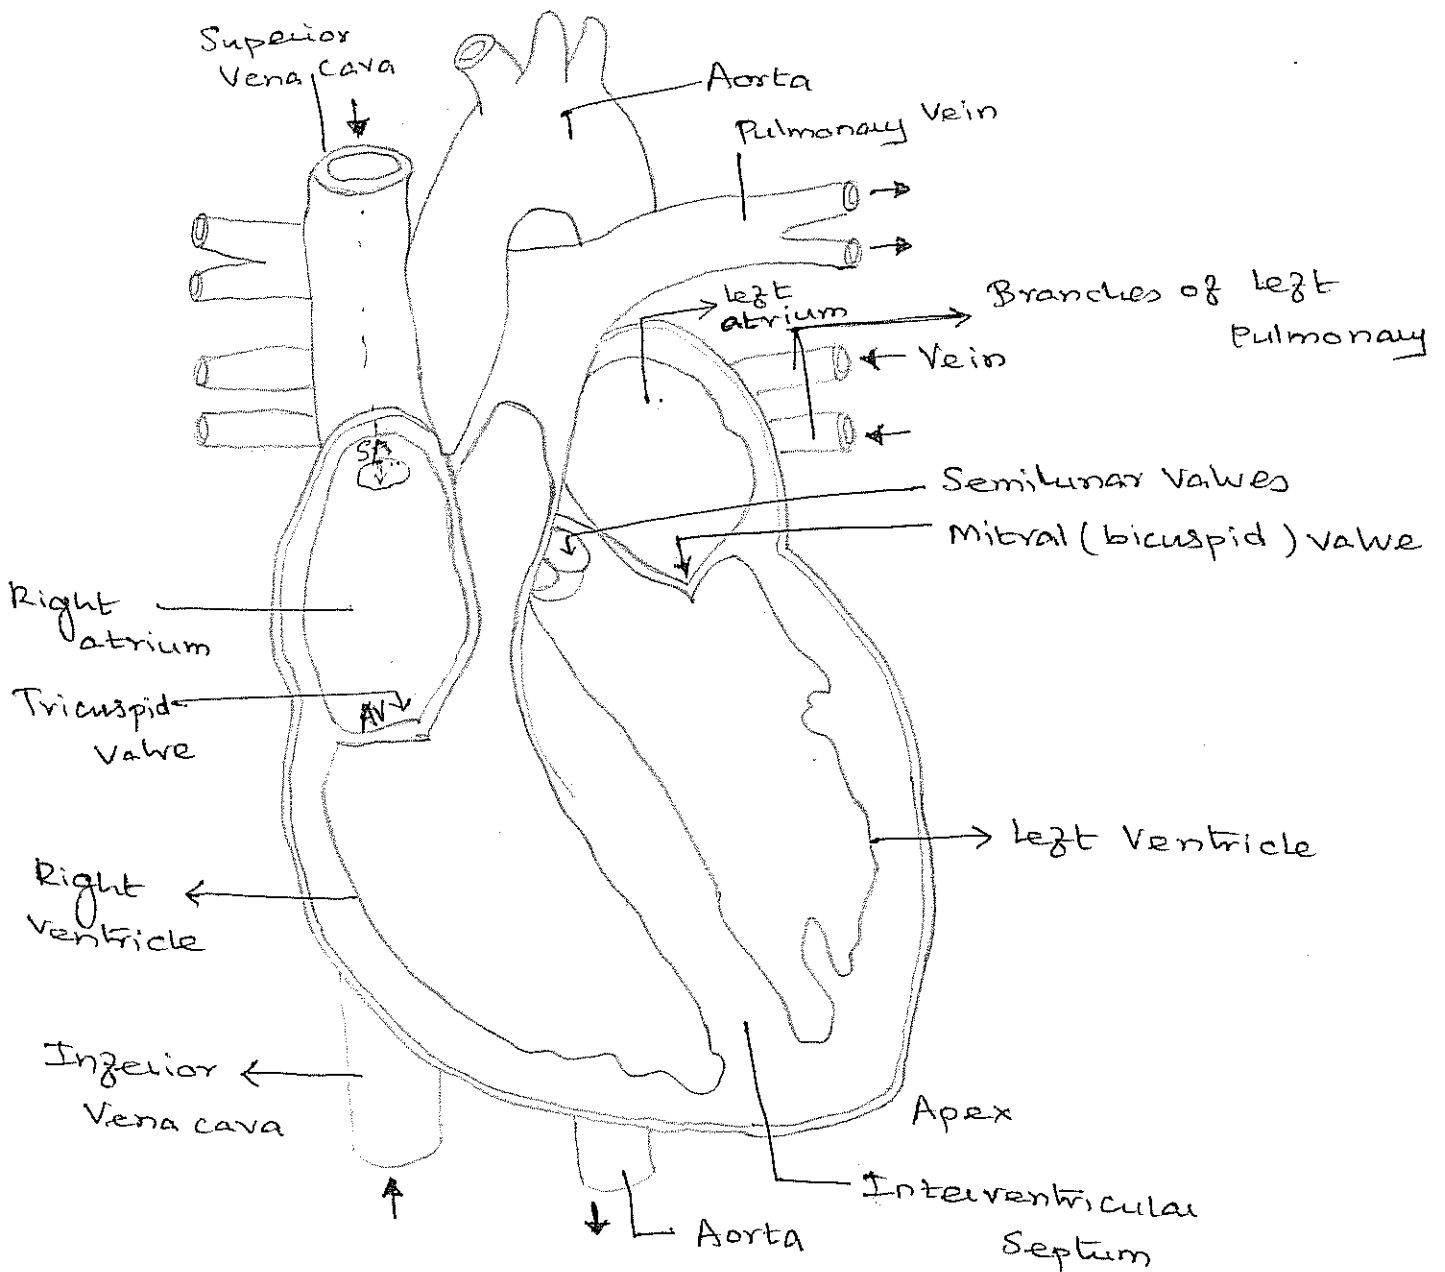 Superior
Vena cava
Aorta
Pulmonary Vein
Left
atrium
Branches of Left
Pulmonary
Vein
SA
Semilunar Valves
Mitral (bicuspid) valve
Right
atrium
Tricuspid
Valve
AV
Left Ventricle
Right
Ventricle
Inferior
Vena cava
Apex
Interventricular
Septum
Aorta